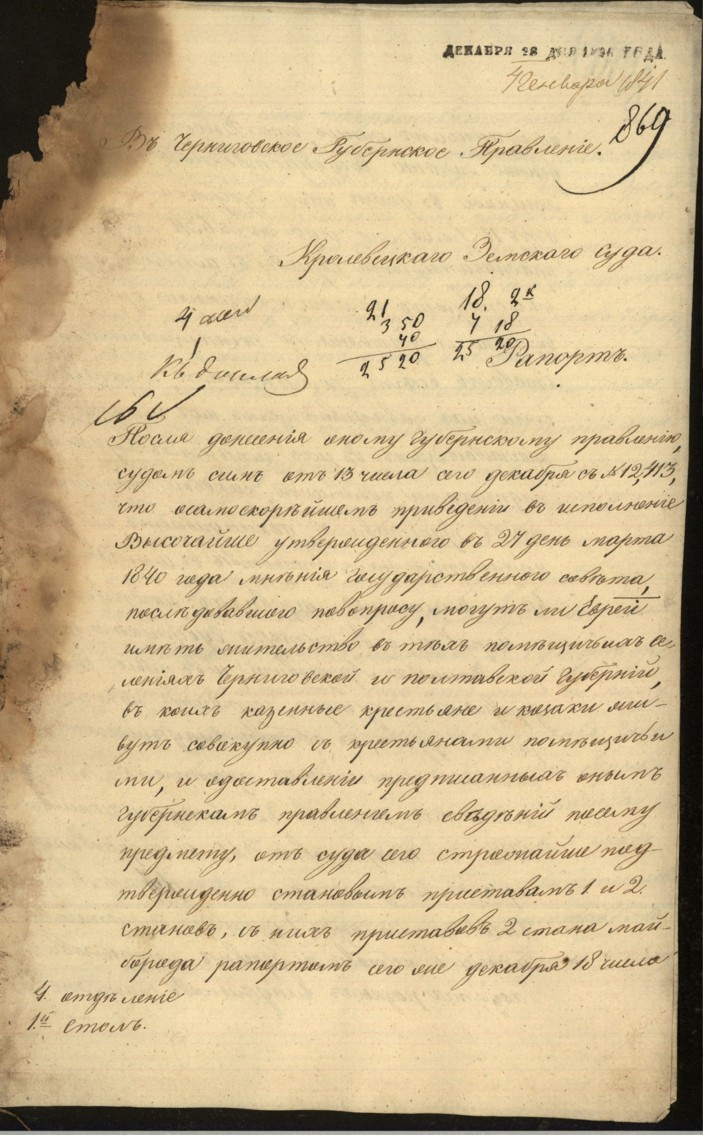 ДЕКАБРЯ 28 ДНЯ ГОДА
4 Генваря 1841
869
Въ Черниговское Губернское Правленіе.
Кролевецкаго Земскаго суда.
21 18. 2к
3 50 7 18
40
25 20 25 20
Рапортъ.
После донесенія оному губернскому правленію,
судомъ симъ отъ 13 числа сего декабря съ № 12,413,
что осамоскорѣйшемъ приведеніи въ исполненіе
Высочайше утвержденного въ 27 день марта
1840 года мнѣнія государственного совѣта,
послѣдовавшого повопросу, могутъ ли Евреи
имѣть жительство въ тѣхъ помѣщичьихъ се
леніяхъ Черниговской и полтавской губерній,
въ коихъ казенные крестьяне и козаки жи-
вутъ совокупно съ крестьянами помѣщичьи
ми, и одоставленіи предписанныхъ онымъ
губернскамъ правленіемъ свѣдѣній посему
предмету, отъ суда сего строжайше под-
твержденно становымъ приставамъ 1 и 2
становъ, съ нихъ приставъ 2 стана май-
борода рапортомъ сего же декабря 18 числа
4. отдѣленіе
1й столъ.